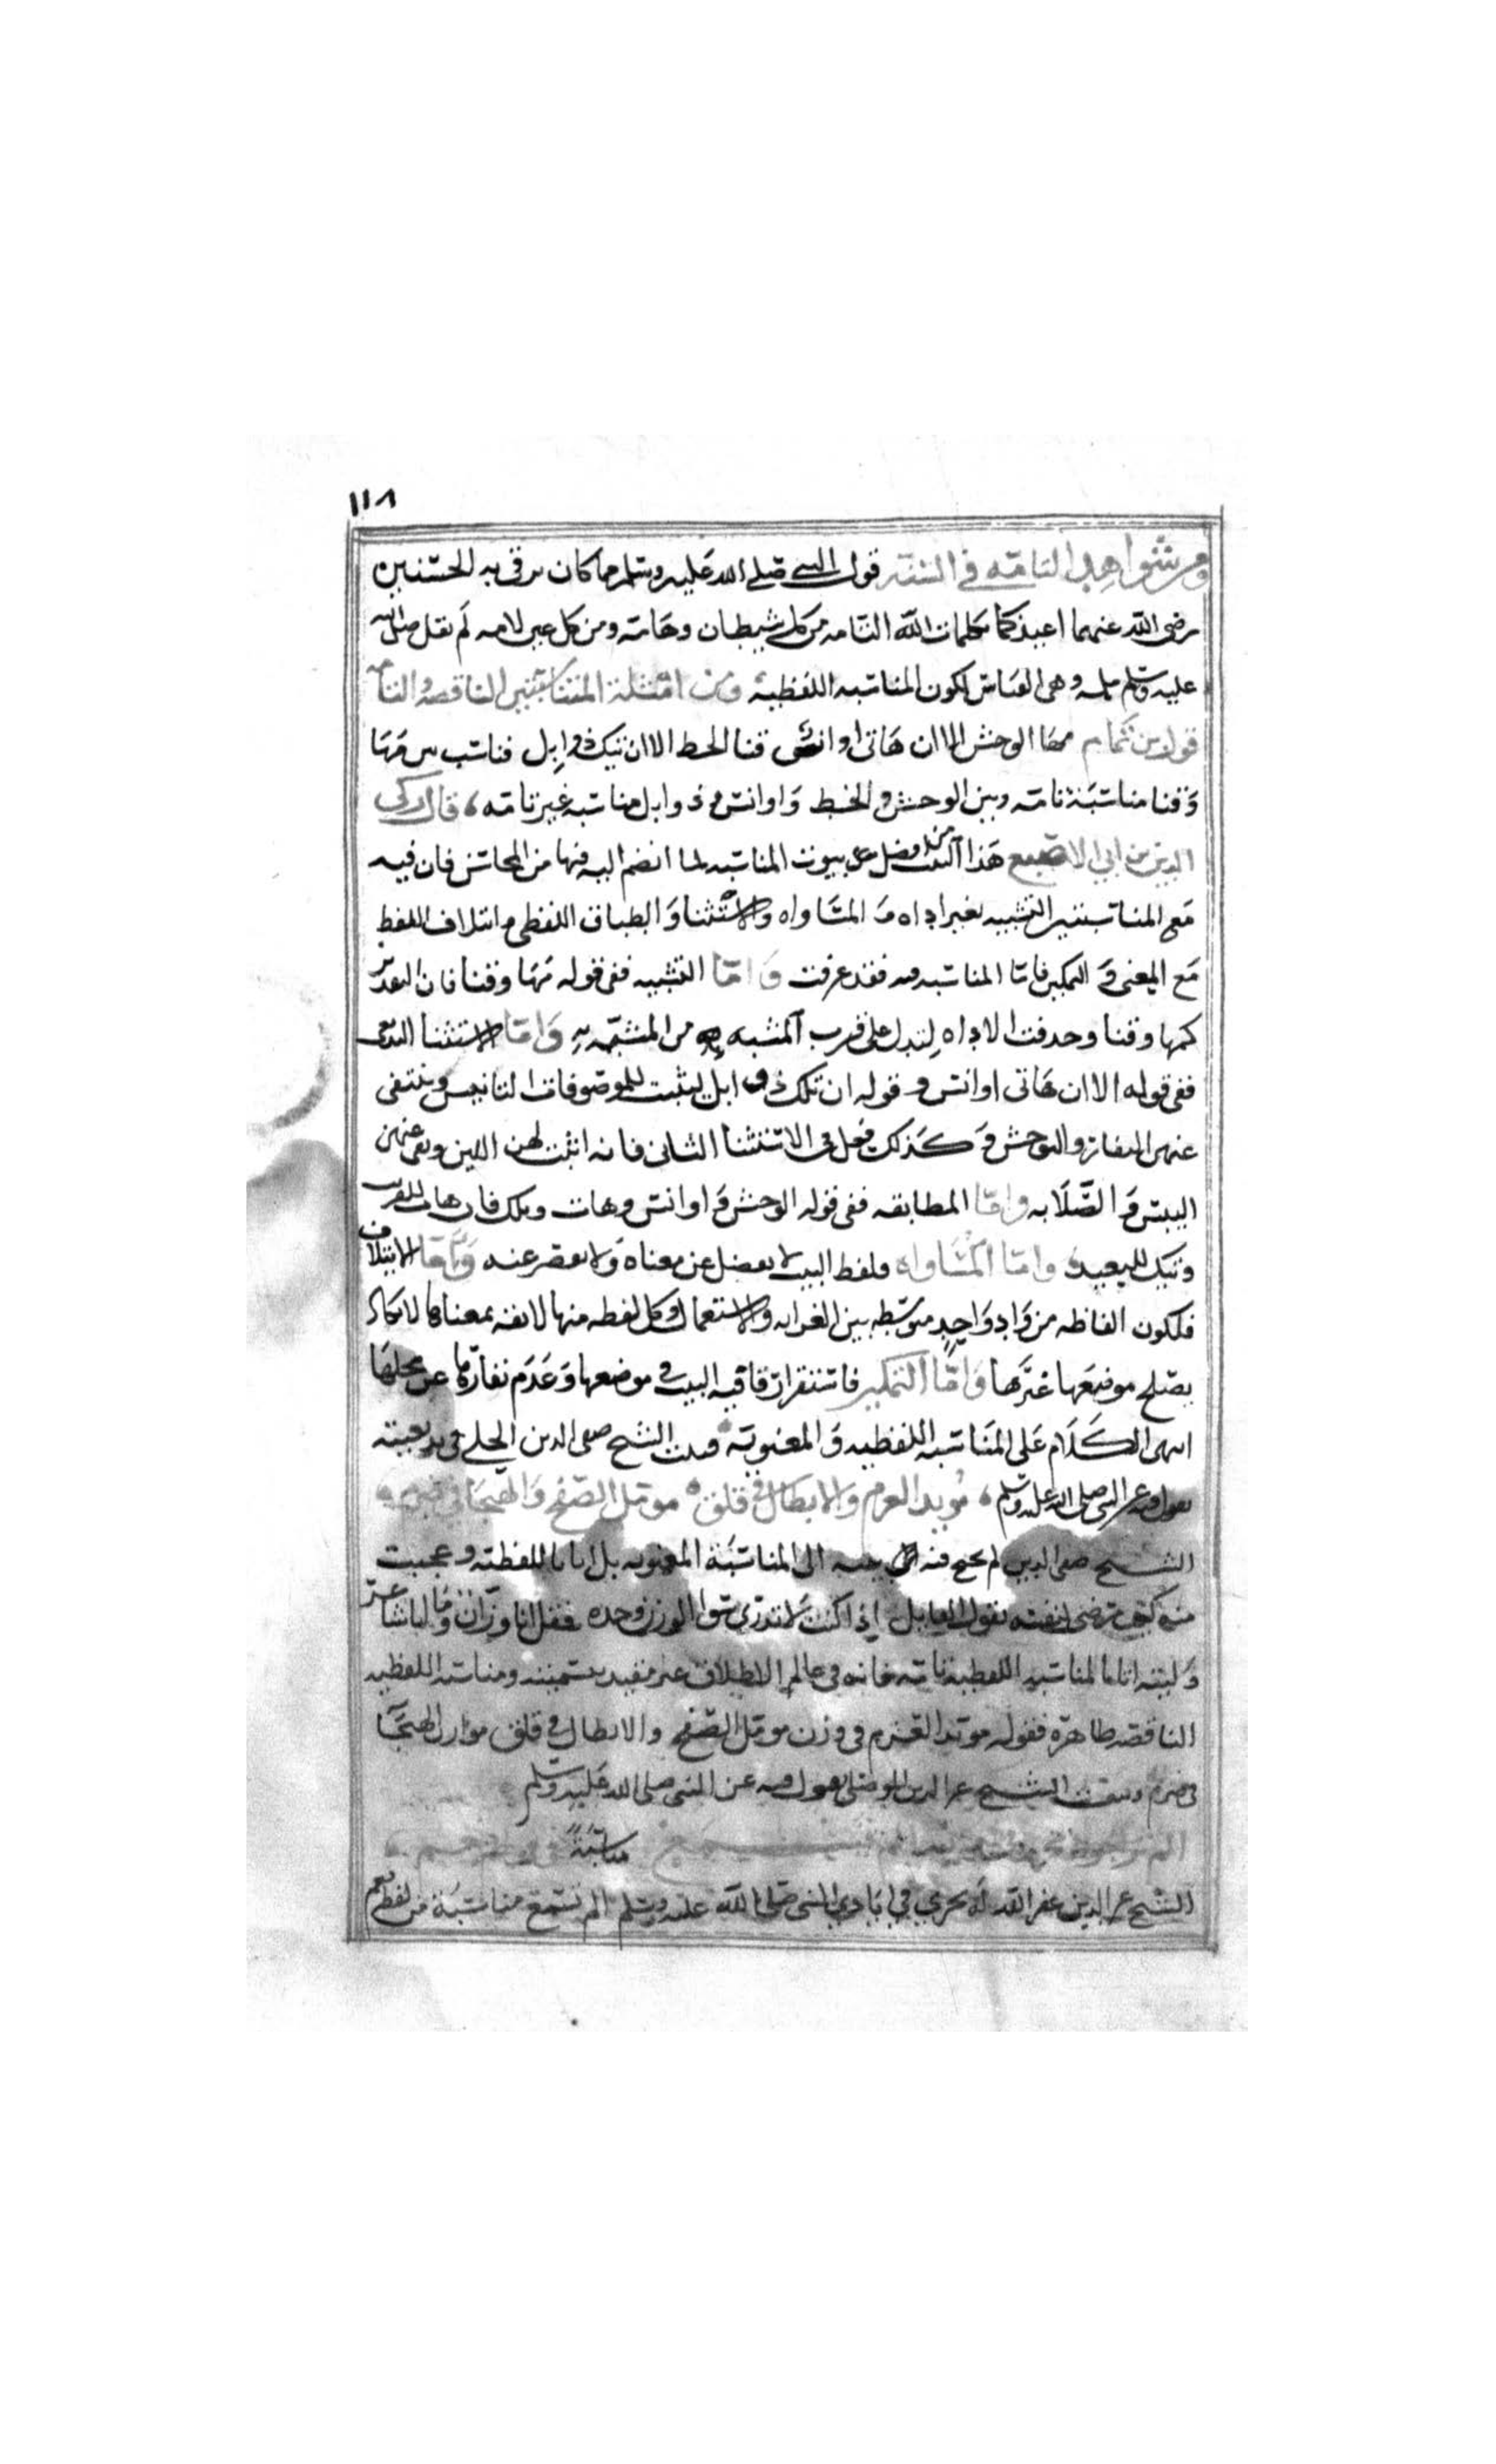 ١١٨
ومن شواهد التامة في السنة قول النبي صلى الله عليه وسلم مما كان يرقي به الحسنين
رضي الله عنهما اعيذكما بكلمات الله التامه من كل شيطان وهامة ومن كل عين لامه لم يقل صلى الله
عليه وسلم ملمه وهي القياس لكون المناسبه اللفظية ومن امثلة المناسبتين الناقصه والتامه
قول بن تمام مها الوحش الا ان هاتى اوانس قنا الخط الا ان تيك ذوابل فناسب بين مها
وقنا مناسبة تامه وبين الوحش والخط واوانس وذوابل مناسبه غير تامه، قال زكي
الدين بن ابي الاصبع هذا البيت من افضل بيوت المناسبه لما انضم اليه فيها من المحاسن فان فيه
مع المناسبتين التشبيه بغير اداه والمساواه والاستثنا والطباق اللفظي وائتلاف اللفظ
مع المعنى والتمكين فاما المناسبه فيه فقد عرفت واما التشبيه ففي قوله مها وقنا فان التقدير
كمها وقنا وحذفت الاداه ليدل على قرب المشبه من المشبه به واما الاستثنا البديعى
ففي قوله الا ان هاتى اوانس وقوله ان تلك ذوابل ليثبت للموصوفات التانيس وينتفى
عنهن النفار والتوحش وكذلك فعل في الاستثنا الثانى فانه اثبت لهن اللين ونفى عنهن
اليبس والصلابه واما المطابقه ففي قوله الوحش واوانس وهات وتلك فان هات للقرب
وتيك للبعيد واما المساواه فلفظ البيت لا يفضل عن معناه ولا يقصر عنه واما الايتلاف
فلكون الفاظه من واد واحد متوسطه بين الغرابه والاستعمال وكل لفظه منها لائقه بمعناها لا تكاد
يصلح موضعها غيرها واما التمكين فاستقرار قافيه البيت في موضعها وعدم نفارها عن محلها
انتهى الكلام على المناسبه اللفظيه والمعنويه وبيت الشيخ صفى الدين الحلي في بديعيته
يقول فيه عن النبي صلى الله عليه وسلم، مؤيد العزم والابطال في قلق مومل الصفح والهيجا في ضرم
الشيخ صفى الدين لم يجنح فيه الى المناسبة المعنويه بل اتانا باللفظيه وعجبت
منه كيف رضى لنفسه بقول القايل اذا كنت لا تدري سوا الوزن وحده فقل انا وزان وما انا شاعر
وليته اتانا بالمناسبه اللفظية تامه فانه في عالم الاطلاق غير مقيد بتسمية ومناسبته اللفظيه
الناقصه ظاهره فقوله مويد العزم في وزن مومل الصفح والابطال في قلق موازن الهيجا
في ضرم وبيت الشيخ عز الدين الموصلي يقول فيه عن النبى صلى الله عليه وسلم
مناسبة
الشيخ عز الدين غفر الله له يجري في ايادي النبى صلى الله عليه وسلم الم تسمع مناسبة من لفظ نعم